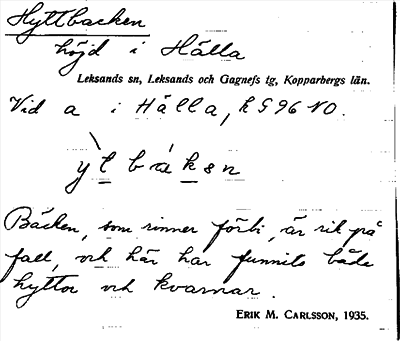 Hyttbacken
höjd i Hälla
Leksands sn, Leksands och Gagnefs tg, Kopparbergs län.
Vid a i Hälla, k 596 NO.
ỳt bákan
Bäcken, som rinner förbi, är rik på
fall, och här har funnits både
hyttor och kvarnar.
ERIK M. CARLSSON, 1935.